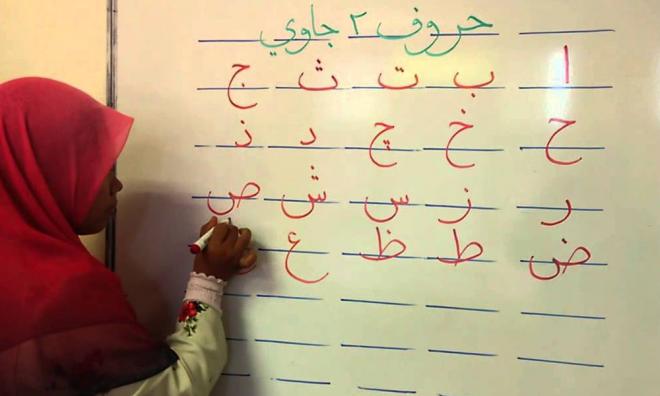 حروف ٢ جاوي
ا ب ت ث ج
ح خ چ د ذ
ر ز س ش ص
ض ط ظ ع